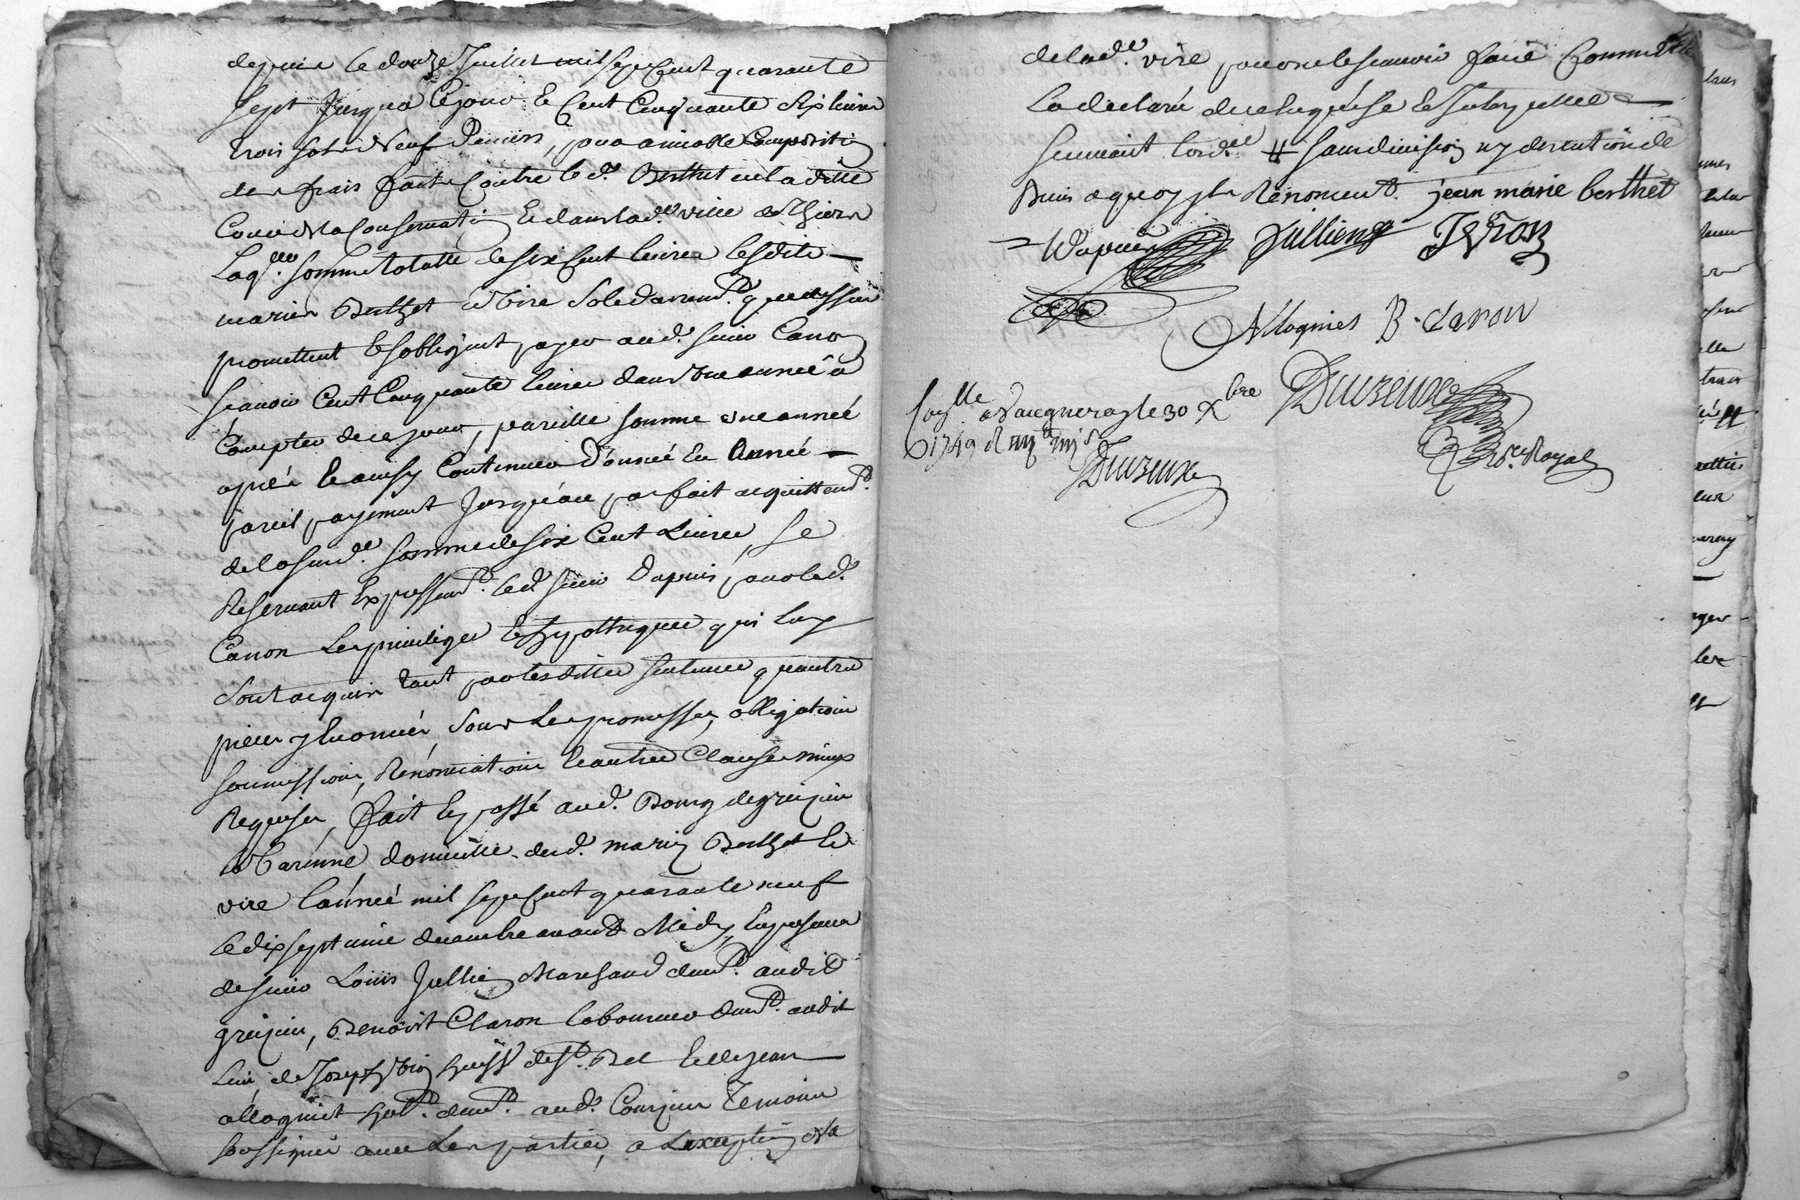 depuis le douze Juillet mil sept cent quarante
sept Jusqua Cejour et Cent Cinquante six livres
trois sols neuf Deniers, pour amiable Composition
des frais faits Contre led. Berthet en la ditte
Cour de la Conservation et dans lad.e ville de
Laq.lle somme totalle de six Cent livres lesdits
mariés Berthet et Vire Solidairem.t que dessus
promettent et sobligent payer aud. sieur Canon
scavoir Cent Cinquante livres dans Une année a
Compter de ce jour, pareille somme une année
après et ainsy Continuer D'année En Année
pareil payement Jusqu'au parfait acquittem.t
de la susd.e somme de six Cent Livres, se
Reservant Expressem.t led. sieur Dapuis, pour led.
Canon Les privileges et hypotheques qui luy
sont acquis tant par lesdittes sentences qu'autres
pieces y Enoncées, sous Les promesses, obligations
soumissions, Rénonciations et autres Clauses
Requises, fait et passé aud. Bourg de grezieu
la Varenne domicille desd. mariez Berthet et
vire l'année mil sept cent quarante neuf
le dix sept decembre avant Midy, En presence
de sieur Louis Jullien Marchand dem.t audit
grezieu, Benoist Claron laboureur dem.t audit
lieu, de Joseph huiss.r de St. Bel et de jean
allognet dem.t aud. Temoins
soussignés avec Les parties, a Lexception de la
delad.e vire pour ne le scavoir faire Comme Elle
La declaré de ce Enquise et Interpellée
suivant lord.ce # sans division ny discution de
Biens a quoy ils Rénoncent. jean marie berthet
= Dapuis Jullien
Allognies B. claron
Duvzeux
N.re Royal
le 30 Xbre
1749
Duvzeux